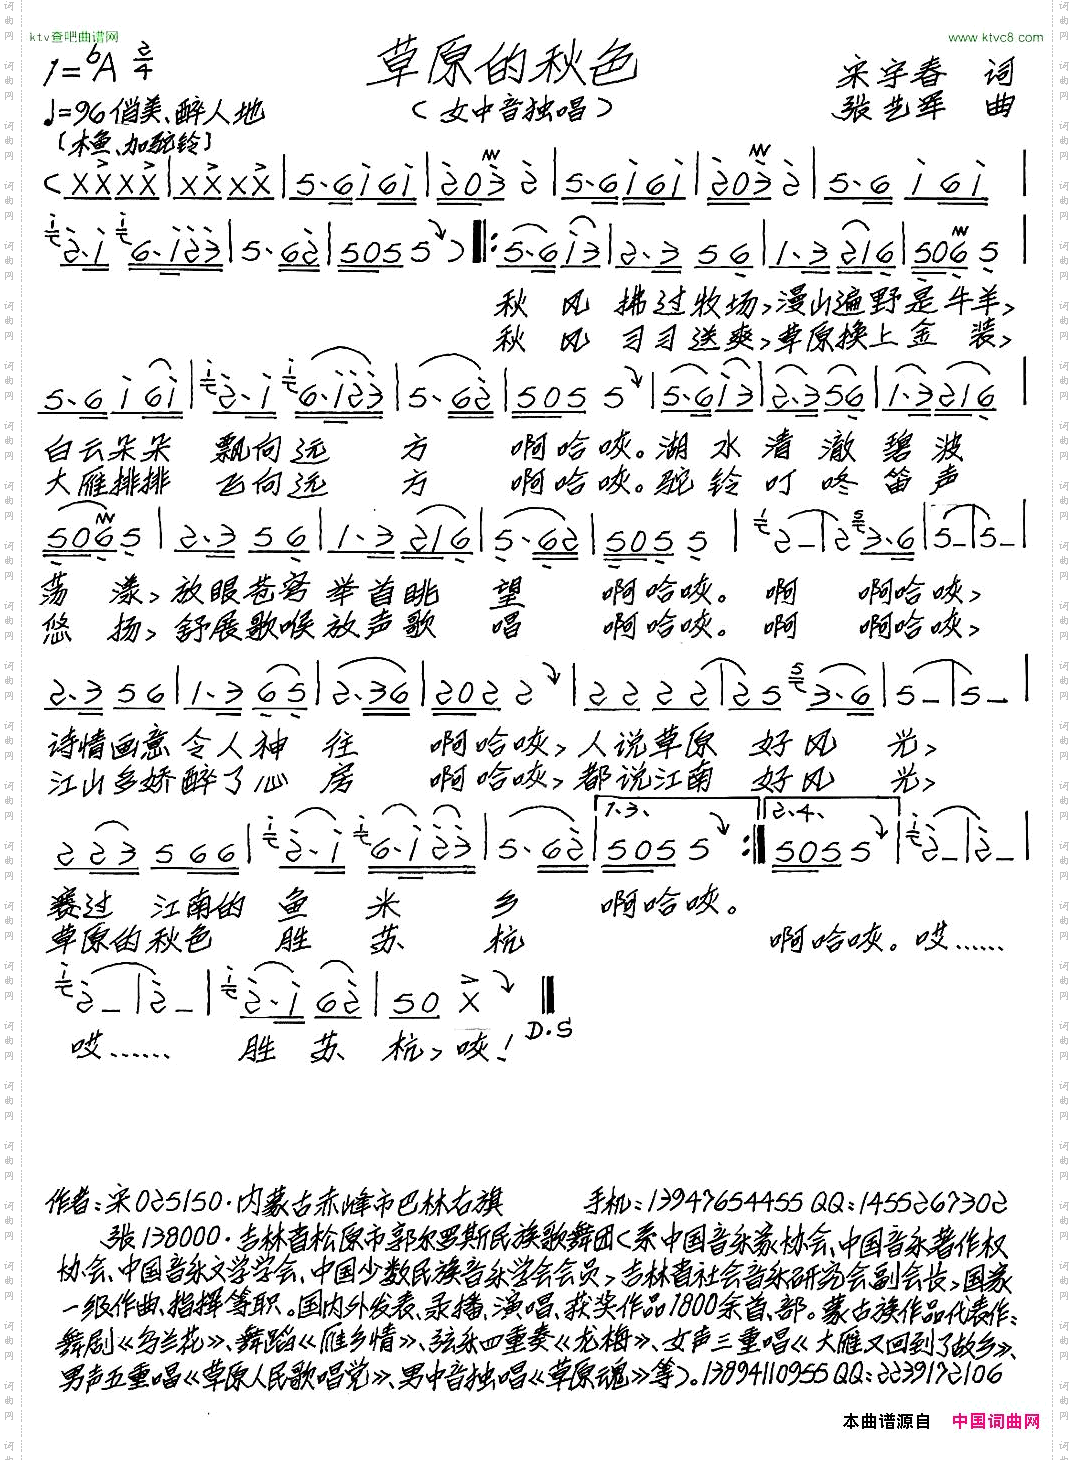 ktv查吧曲谱网
www.ktvc8.com
草原的秋色
1=bA 2/4
宋宇春 词
♩=96 俏美、醉人地
(女中音独唱)
张艺军 曲
(木鱼、加驼铃)
秋风拂过牧场,漫山遍野是牛羊,
秋风习习送爽,草原换上金装,
白云朵朵 飘向远方 啊哈咴。湖水清澈碧波
大雁排排 飞向远方 啊哈咴。驼铃叮咚笛声
荡漾,放眼苍穹举首眺望 啊哈咴。啊 啊哈咴,
悠扬,舒展歌喉放声歌唱 啊哈咴。啊 啊哈咴,
诗情画意令人神往 啊哈咴,人说草原好风光,
江山多娇醉了心房 啊哈咴,都说江南好风光,
1、3、 2、4、
赛过江南的鱼米乡 啊哈咴。
草原的秋色胜苏杭 啊哈咴。哎……
哎…… 胜苏杭,咴!
D.S
作者:宋025150·内蒙古赤峰市巴林右旗 手机:13947654455 QQ:1455267302
张138000·吉林省松原市郭尔罗斯民族歌舞团(系中国音乐家协会、中国音乐著作权
协会、中国音乐文学学会、中国少数民族音乐学会会员,吉林省社会音乐研究会副会长,国家
一级作曲、指挥等职。国内外发表、录播、演唱、获奖作品1800余首、部。蒙古族作品代表作:
舞剧《乌兰花》、舞蹈《雁乡情》、弦乐四重奏《龙梅》、女声三重唱《大雁又回到了故乡》、
男声五重唱《草原人民歌唱党》、男中音独唱《草原魂》等)。13894110955 QQ:2239172106
本曲谱源自 中国词曲网